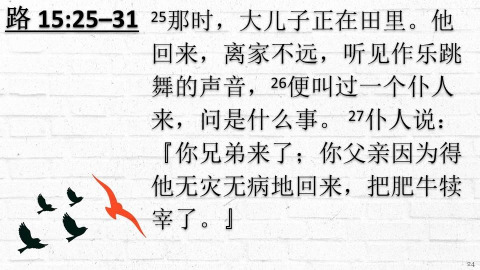 路 15:25–31
25那时，大儿子正在田里。他
回来，离家不远，听见作乐跳
舞的声音，26便叫过一个仆人
来，问是什么事。 27仆人说：
『你兄弟来了；你父亲因为得
他无灾无病地回来，把肥牛犊
宰了。』
24